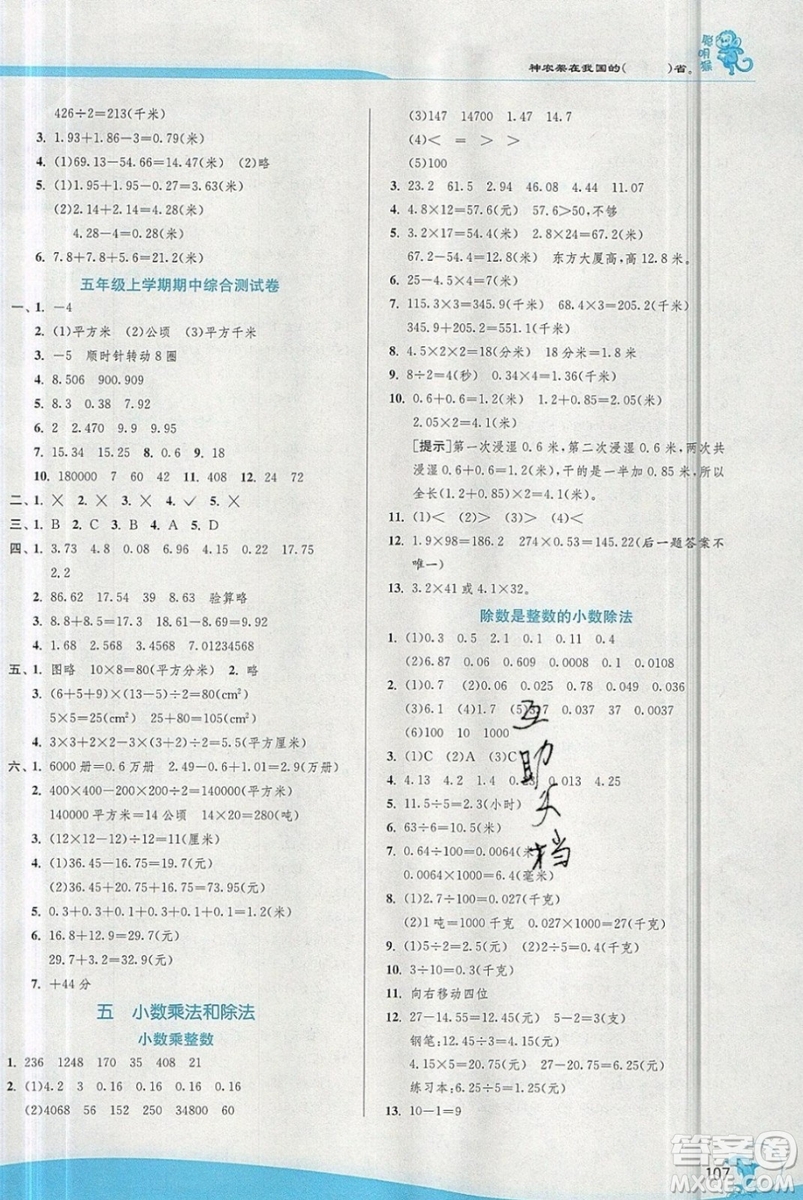 神农架在我国的(　　)省。
426÷2=213(千米)
3. 1.93+1.93-3=0.79(米)
4. (1)69.13-54.66=14.46(米) (2)略
5. (1)1.95+1.95-0.15=3.75(米)
(2)2.14+2.14=4.28(米)
4.28-4=0.28(米)
6. 7.8+7.8+5.6=21.2(米)
五年级上学期期中综合测试卷
一、1. -4
2. (1)平方米 (2)公顷 (3)平方千米
3. -5 顺时针转动8圈
4. 8.506 900.909
5. 8.3 0.38 7.92
6. 2 2.470 9.9 9.95
7. 15.34 15.25 8. 0.6 9. 18
10. 180000 7 60 42 11. 408 12. 24 72
二、1. × 2. × 3. × 4. ✓ 5. ×
三、1. B 2. C 3. B 4. A 5. D
四、1. 3.73 4.8 0.08 16.35 0.22 17.75
2.2
2. 86.62 10.44 39 8.63 验算略
3. 8.8+8.5=17.3 16.61-6.61=10
4. 1.68 2.3468 3.4568 7.01234568
五、1. 图略 10×8=80(平方分米) 2. 略
3. (6+13-5)×(13-5)÷2=80(cm²)
5×5=25(cm²) 80-25=55(cm²)
4. 3×3×2-2×2-3×5÷2=6.5(平方厘米)
六、1. 6000册=0.6万册 2.9-0.6+0.6=2.9(万册)
2. 400×400-200×100=140000(平方米)
140000平方米=14公顷 14×20=280(吨)
3. (12×12-12)÷12=11(厘米)
4. (1)36.45-16.75=19.7(元)
(2)36.45+20.75+16.75=73.95(元)
5. 0.3+0.3+0.1+0.3+0.1+0.1=1.2(米)
6. 16.8+12.9=29.7(元)
29.7+3.2=32.9(元)
7. +44分
五 小数乘法和除法
小数乘整数
1. 236 1248 170 35 408 21
2. (1)4.2 3 0.16 0.16 0.16 0.16
(2)4068 56 152 250 34800 60
(3)147 14700 1.47 147
(4)< = > >
(5)100
3. 23.2 61.5 2.94 46.08 4.44 11.07
4. 4.8×12=57.6(元) 57.6>50,不够
5. 3.2×17=54.4(米) 2.8×24=67.2(米)
67.2-54.4=12.8(米) 东方大厦高,高12.8米。
6. 25-4.5×4=7(米)
7. 115.3×3=345.9(千米) 102.6×2=205.2(千米)
345.9+205.2=551.1(千米)
8. 4.5×2×2=18(分米) 18分米=1.8米
9. 8÷2=4(秒) 4×0.34=1.36(千米)
10. 0.6+0.6=1.2(米) 1.2+0.85=2.05(米)
2.05×2=4.1(米)
[提示]第一次浸湿0.6米,第二次浸湿0.6米,两次共
浸湿0.6+0.6=1.2(米),干的是一半加0.85米,所以
全长(1.2+0.85)×2=4.1(米)。
11. (1)< (2)> (3)> (4)<
12. 1.9×98=186.2 274×0.53=145.22(后一题答案不
唯一)
13. 3.2×41或4.1×32。
除数是整数的小数除法
1. (1)0.3 0.5 2.1 0.1 0.11 0.4
(2)6.87 0.06 0.609 0.06 0.111
2. (1)0.7 (2)0.06 0.025 0.78 0.049 0.036
(3)6.1 (4)1.7 (5)3.7 0.037 37 0.0037
(6)100 10 1000
3. (1)C (2)A (3)C
4. 4.13 4.2 0.013 4.25
5. 11.5÷5=2.3(小时)
6. 63÷6=10.5(米)
7. 0.64÷100=0.0064(米)
0.0064×1000=6.4(毫米)
8. (1)2.7÷100=0.027(千克)
(2)1吨=1000千克 0.027×1000=27(千克)
9. (1)5÷2=2.5(千克) (2)2.5÷5=0.5(千克)
10. 3÷10=0.3(千克)
11. 向右移动四位
12. 27-14.55=12.45(元)
钢笔:12.45÷(5-2)=4.15(元)
4.15×5=20.75(元) 27-20.75=6.25(元)
练习本:6.25÷5=1.25(元)
13. 10-1=9
互
助
文
档
107
答案圈